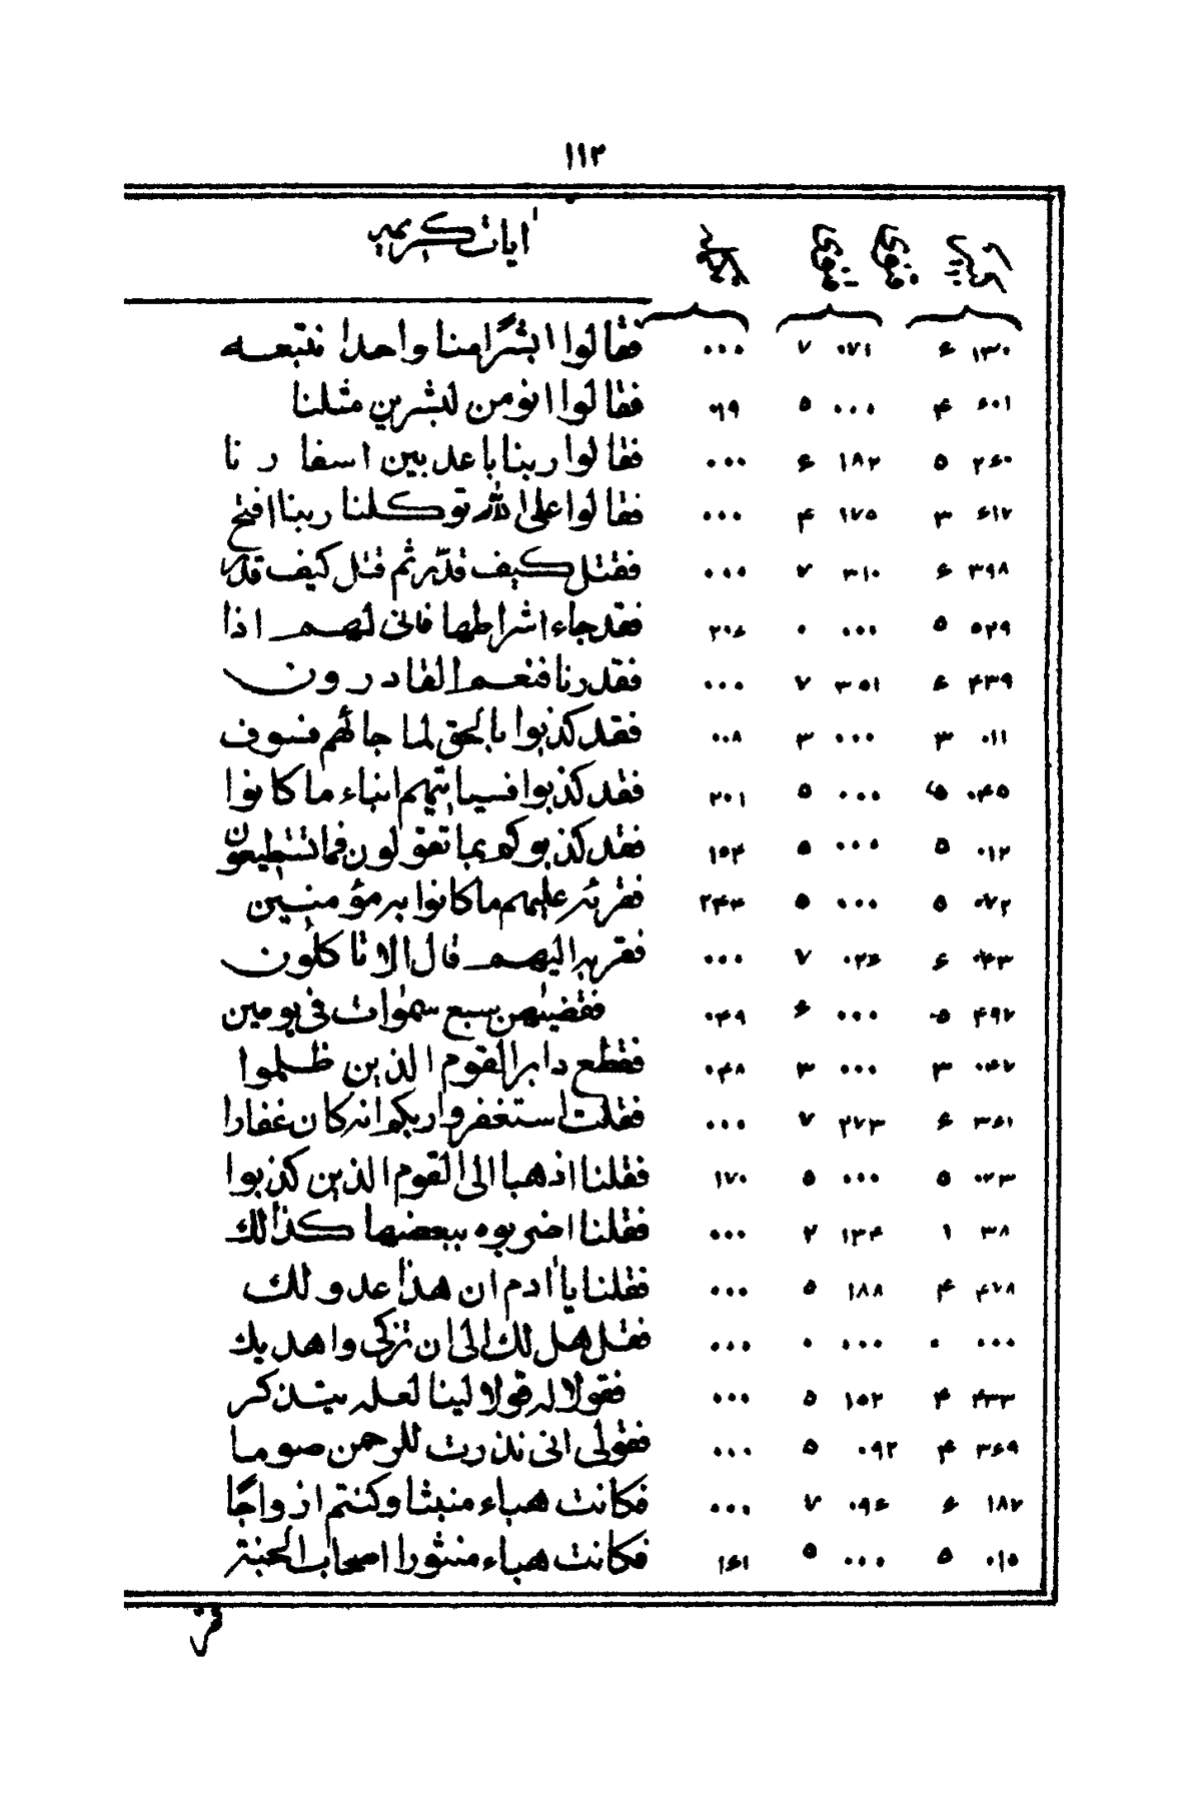 ١١٢
اٰیات کریمه
١٣٠ ۶ ٠٧١ ٧ ٠٠٠ فقالوا ابشرًا منا واحدا نتبعه
۶٠١ ۴ ٠٠٠ ٥ ٠١٩ فقالوا انومن لبشرین مثلنا
٢۶٠ ٥ ١٨٢ ۶ ٠٠٠ فقالوا ربنا باعد بین اسفا ر نا
۶١٧ ٣ ١٧٥ ۴ ٠٠٠ فقالوا علی الله توکلنا ربنا افتح
٣٩٨ ۶ ٣١٠ ٧ ٠٠٠ فقتل کیف قدّر ثم قتل کیف قدر
٥٢٩ ٥ ٠٠٠ ٠ ٢٠۶ فقد جاء اشراطها فانی لهم اذا
۴٣٩ ۶ ٣٥١ ٧ ٠٠٠ فقدرنا فنعم القادرون
٠١١ ٣ ٠٠٠ ٣ ٠٠٨ فقد کذبوا بالحق لما جائهم فسوف
٠۴٥ ٥ ٠٠٠ ٥ ٢٠١ فقد کذبوا فسیاتیهم انباء ما کانوا
٠١٢ ٥ ٠٠٠ ٥ ١٥٢ فقد کذبوکم بما تقولون فما تستطیعون
٠٧٢ ٥ ٠٠٠ ٥ ٢۴۴ فقرئه علیهم ما کانوا به مؤمنین
٠۴٣ ۶ ٠٢۶ ٧ ٠٠٠ فقربه الیهم قال الا تاکلون
۴٩٧ ٥ ٠٠٠ ۶ ٠۴٩ فقضیٰهن سبع سمٰوات فی یومین
٠۴٧ ٣ ٠٠٠ ٣ ٠۴٨ فقطع دابر القوم الذین ظلموا
٣۶١ ۶ ٢٧٣ ٧ ٠٠٠ فقلت استغفروا ربکم انه کان غفارا
٠٢٣ ٥ ٠٠٠ ٥ ١٧٠ فقلنا اذهبا الی القوم الذین کذبوا
٣٨ ١ ١٣۴ ٢ ٠٠٠ فقلنا اضربوه ببعضها کذٰلك
۴٧٨ ۴ ١٨٨ ٥ ٠٠٠ فقلنا یا ادم ان هذا عدو لك
٠٠٠ ٠ ٠٠٠ ٠ ٠٠٠ فقل هل لك الی ان تزکی واهدیك
۴٣٣ ۴ ١٥٢ ٥ ٠٠٠ فقولا له قولا لینا لعله یتذکر
٣۶٩ ۴ ٠٩٢ ٥ ٠٠٠ فقولی انی نذرت للرحمن صوما
١٨٧ ۶ ٠٩۶ ٧ ٠٠٠ فکانت هباء منبثا وکنتم ازواجًا
٠١٥ ٥ ٠٠٠ ٥ ١۶١ فکانت هباء منثورا اصحاب الجنة